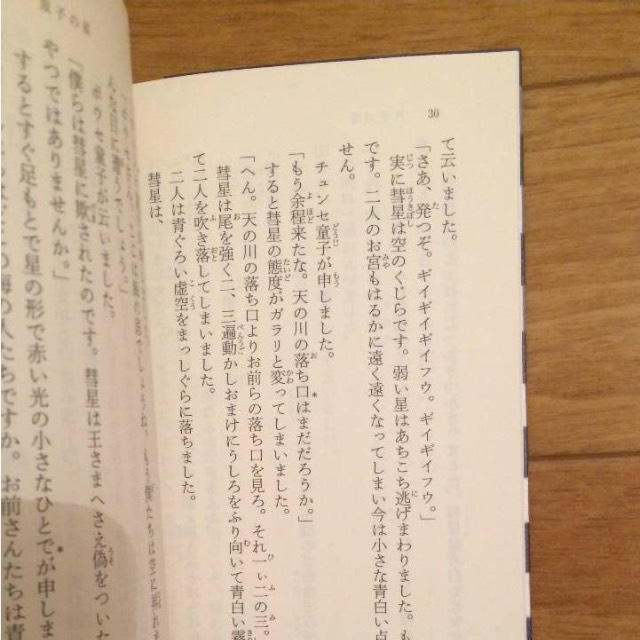 30
て云いました。
「さあ、発つぞ。ギイギイギイフウ。ギイギイフウ。」
実に彗星は空のくじらです。弱い星はあちこち逃げまわりました。も
です。二人のお宮もはるかに遠く遠くなってしまい今は小さな青白い点
せん。
チュンセ童子が申しました。
「もう余程来たな。天の川の落ち口はまだだろうか。」
すると彗星の態度がガラリと変ってしまいました。
「へん。天の川の落ち口よりお前らの落ち口を見ろ。それ一ぃ二の三。
彗星は尾を強く二、三遍動かしおまけにうしろをふり向いて青白い霧
て二人を吹き落してしまいました。
二人は青ぐろい虚空をまっしぐらに落ちました。
彗星は、
双子の星
ポウセ童子が云いました。
「僕らは彗星に欺されたのです。彗星は王さまへさえ偽をついた
やつではありませんか。」
するとすぐ足もとで星の形で赤い光の小さなひとでが申しま
の海の人たちですか。お前さんたちは青